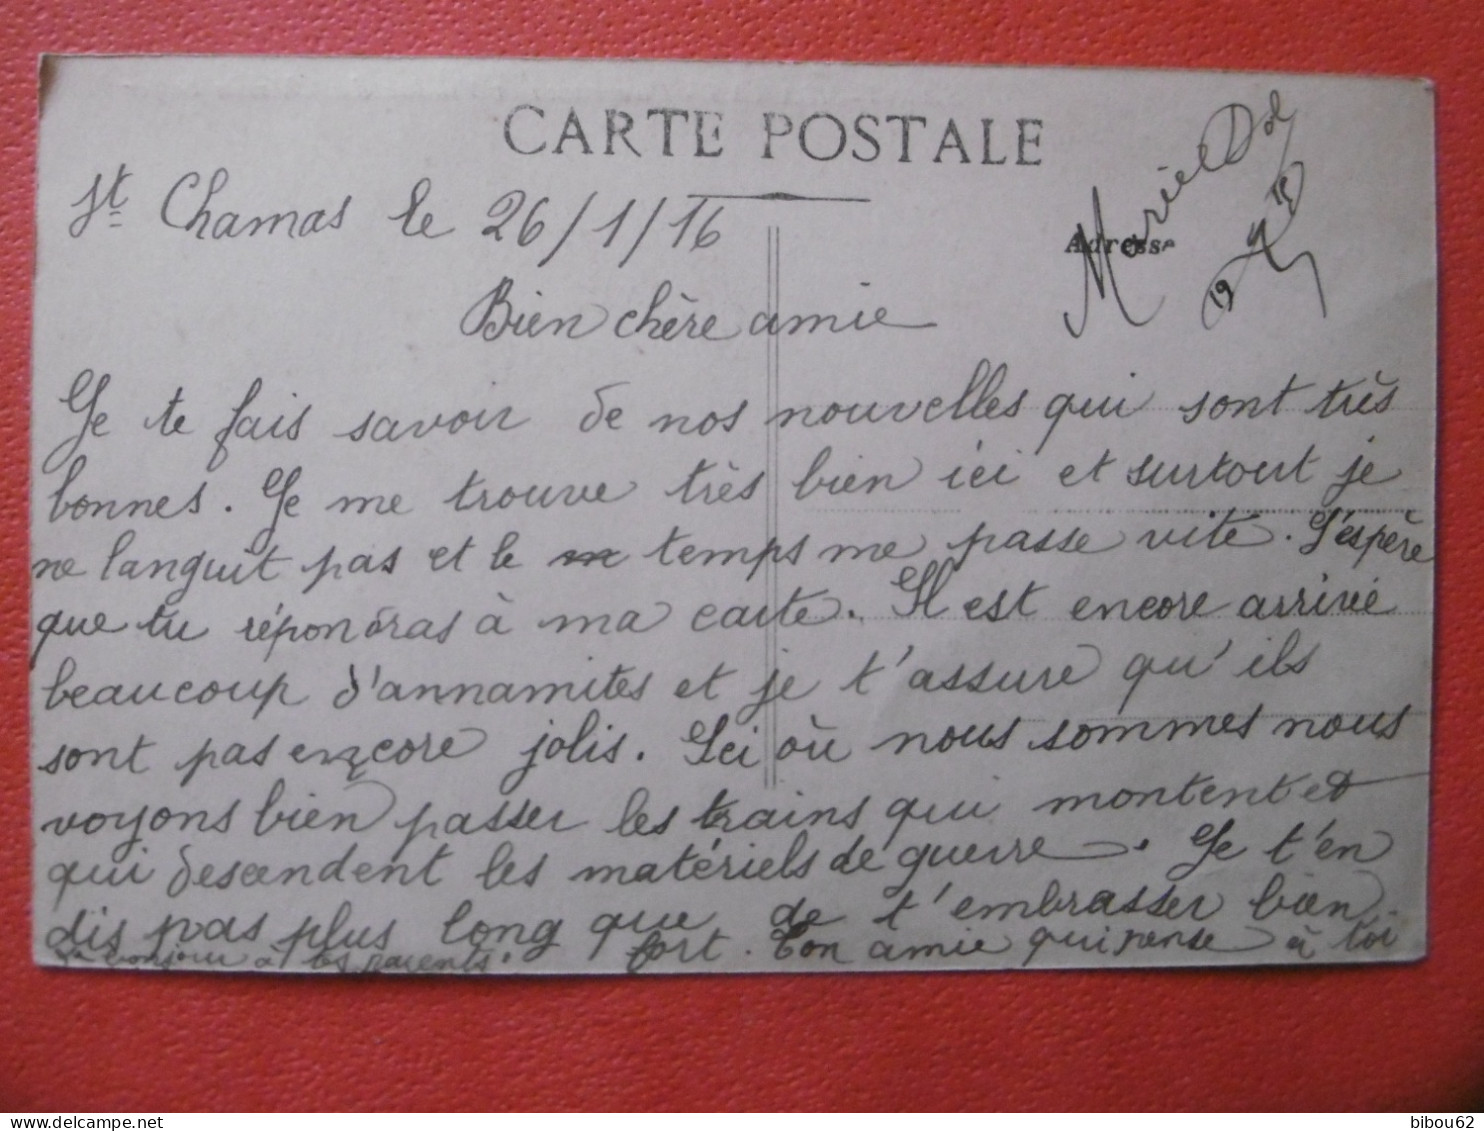 CARTE POSTALE
St Chamas le 26/1/16
Adresse
Bien chère amie
Je te fais savoir de nos nouvelles qui sont très
bonnes. Je me trouve très bien ici et surtout je
ne languit pas et le temps me passe vite. J'espère
que tu répondras à ma carte. Il est encore arrivé
beaucoup d'annamites et je t'assure qu'ils
sont pas encore jolis. Ici où nous sommes nous
voyons bien passer les trains qui montent et
qui descendent les matériels de guerre. Je t'en
dis pas plus long que de t'embrasser bien
fort. Ton amie qui pense à toi
bonjour à tes parents.
bibou62